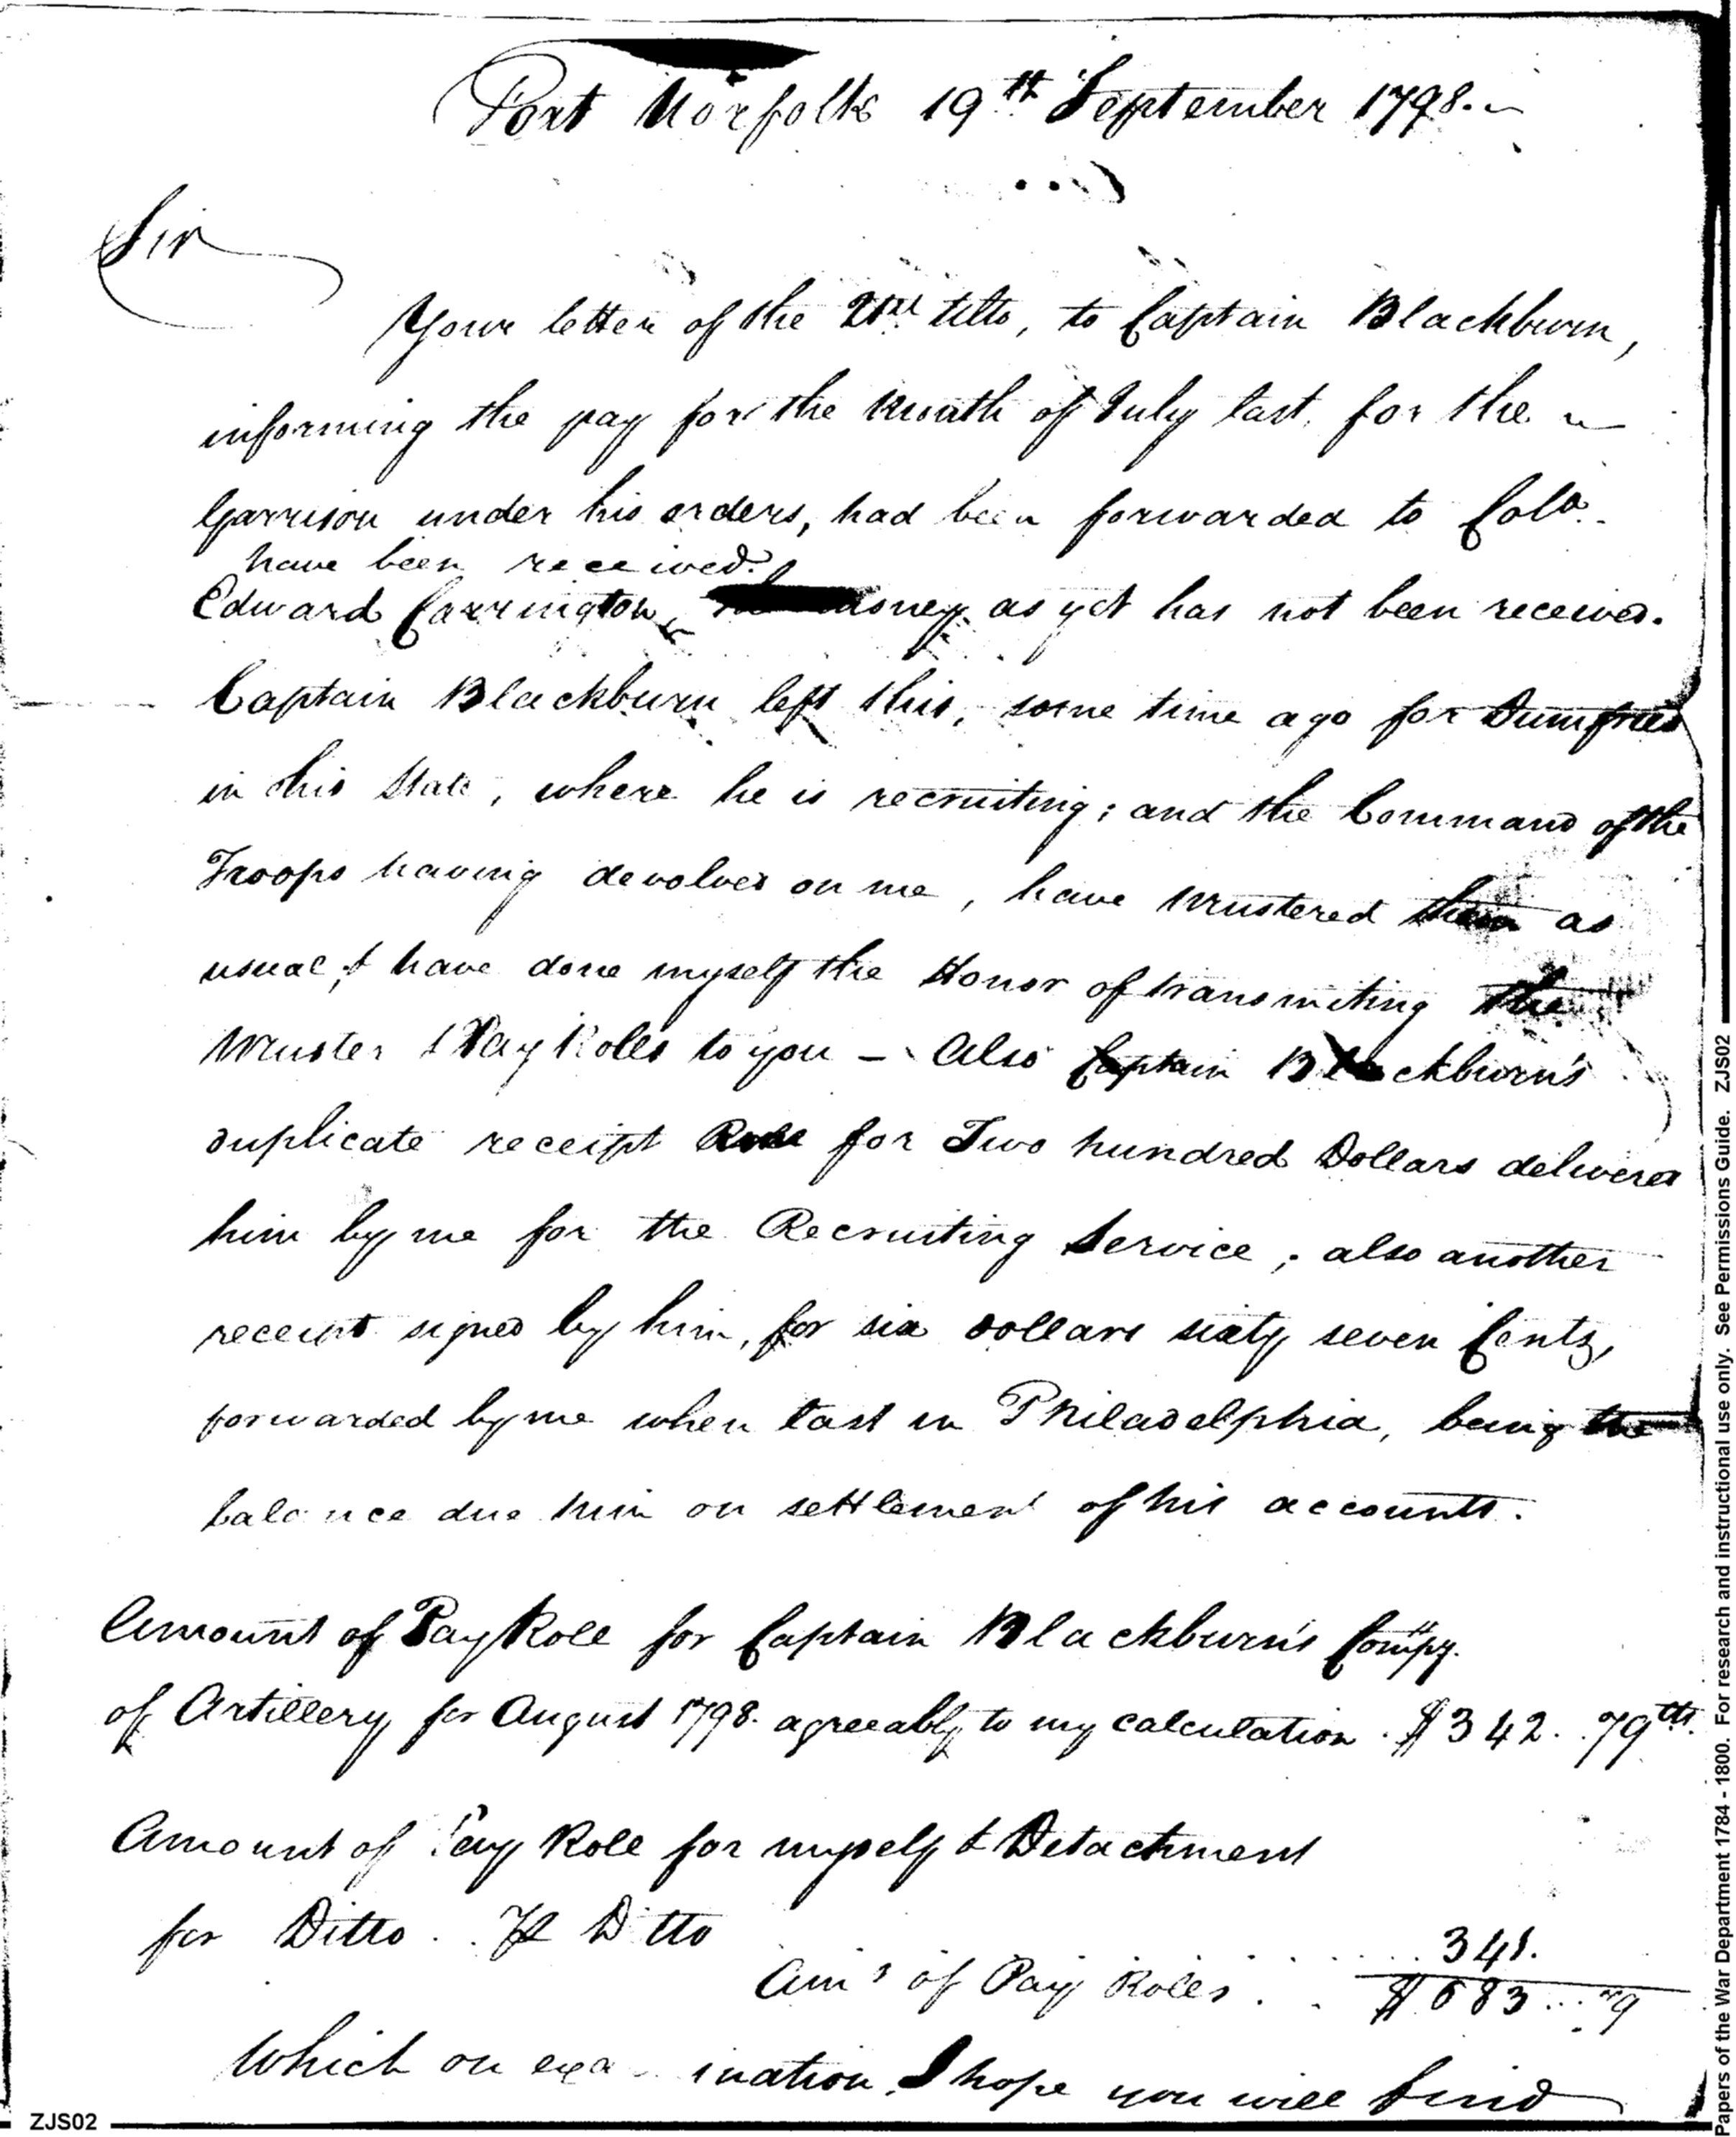 Fort Norfolk 19th September 1798.
Sir
Your letter of the 21st Ulto, to Captain Blackburn,
informing the pay for the Month of July last, for the
Garrison under his orders, had been forwarded to Colo.
have been received.
Edward Carrington, money as yet has not been received.
Captain Blackburn left this, some time ago for Dumfries
in this State, where he is recruiting; and the Command of the
Troops having devolved on me, have Mustered them as
usual, & have done myself the Honor of transmiting the
Muster & Pay Rolls to you — Also Captain Blackburn's
duplicate receipt for Two hundred Dollars delivered
him by me for the Recruiting Service; also another
receipt signed by him, for six dollars sixty seven Cents,
forwarded by me when last in Philadelphia, being the
balance due him on settlement of his accounts.
Amount of Pay Role for Captain Blackburn's Compy.
of Artillery for August 1798. agreeably to my calculation. $342. 79cts.
Amount of Pay Role for myself & Detachment
for Ditto. . Ditto
341.
Amt of Pay Roles . . $683...79
Which on examination, I hope you will find
ZJS02
Papers of the War Department 1784 - 1800. For research and instructional use only. See Permissions Guide. ZJS02